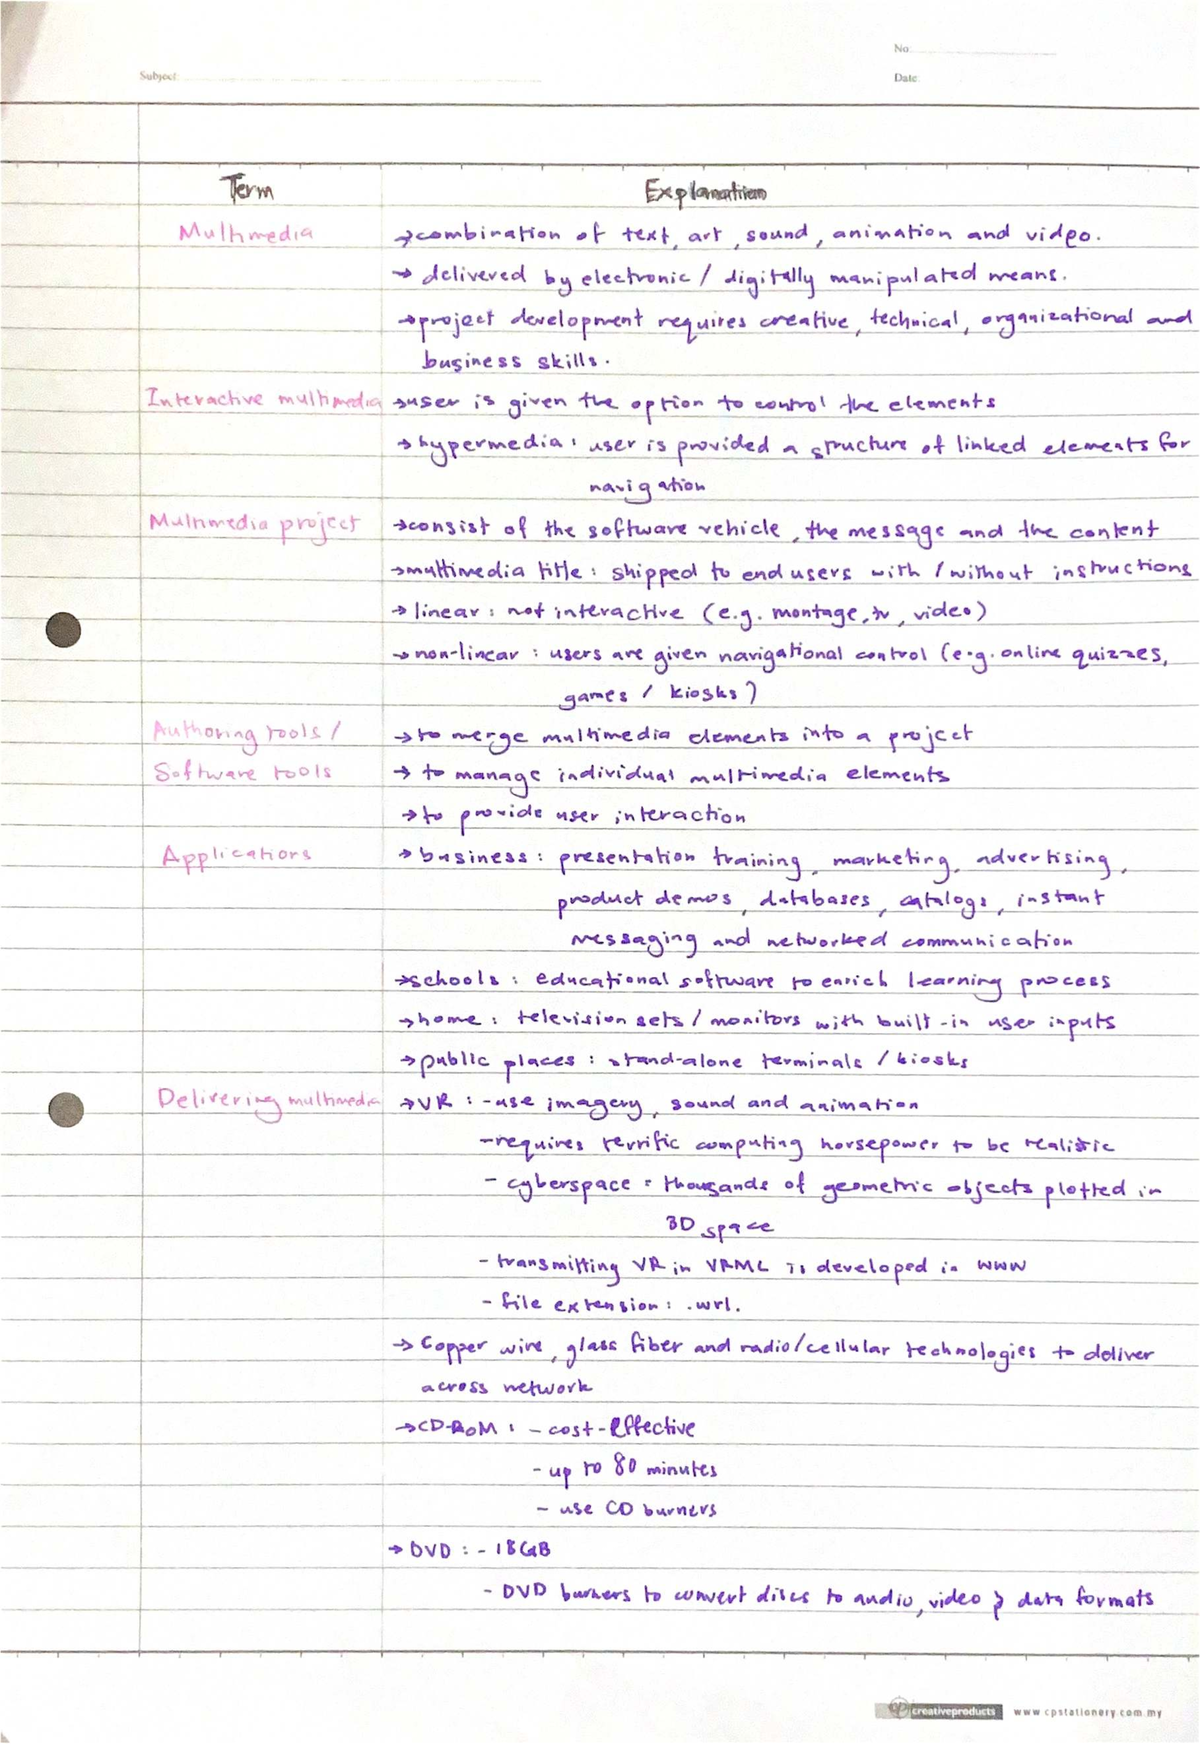 No
Subject
Date
Term Explanation
Multimedia →combination of text, art, sound, animation and video.
→ delivered by electronic / digitally manipulated means.
→project development requires creative, technical, organizational and
business skills.
Interactive multimedia →user is given the option to control the elements
→hypermedia : user is provided a structure of linked elements for
navigation
Multimedia project →consist of the software vehicle, the message and the content
→multimedia title : shipped to end users with / without instructions
→ linear : not interactive (e.g. montage, tv, video)
→non-linear : users are given navigational control (e.g. online quizzes,
games / kiosks)
Authoring tools / →to merge multimedia elements into a project
Software tools → to manage individual multimedia elements
→to provide user interaction
Applications →business : presentation training, marketing, advertising,
product demos, databases, catalogs, instant
messaging and networked communication
→schools : educational software to enrich learning process
→home : television sets / monitors with built-in user inputs
→public places : stand-alone terminals / kiosks
Delivering multimedia →VR : -use imagery, sound and animation
-requires terrific computing horsepower to be realistic
- cyberspace = thousands of geometric objects plotted in
3D space
- transmitting VR in VRML is developed in WWW
- file extension : .wrl.
→ Copper wire, glass fiber and radio/cellular technologies to deliver
across network
→CD-ROM : - cost-effective
- up to 80 minutes
- use CD burners
→ DVD : - 18GB
- DVD burners to convert discs to audio, video & data formats
cp creativeproducts www.cpstationery.com.my